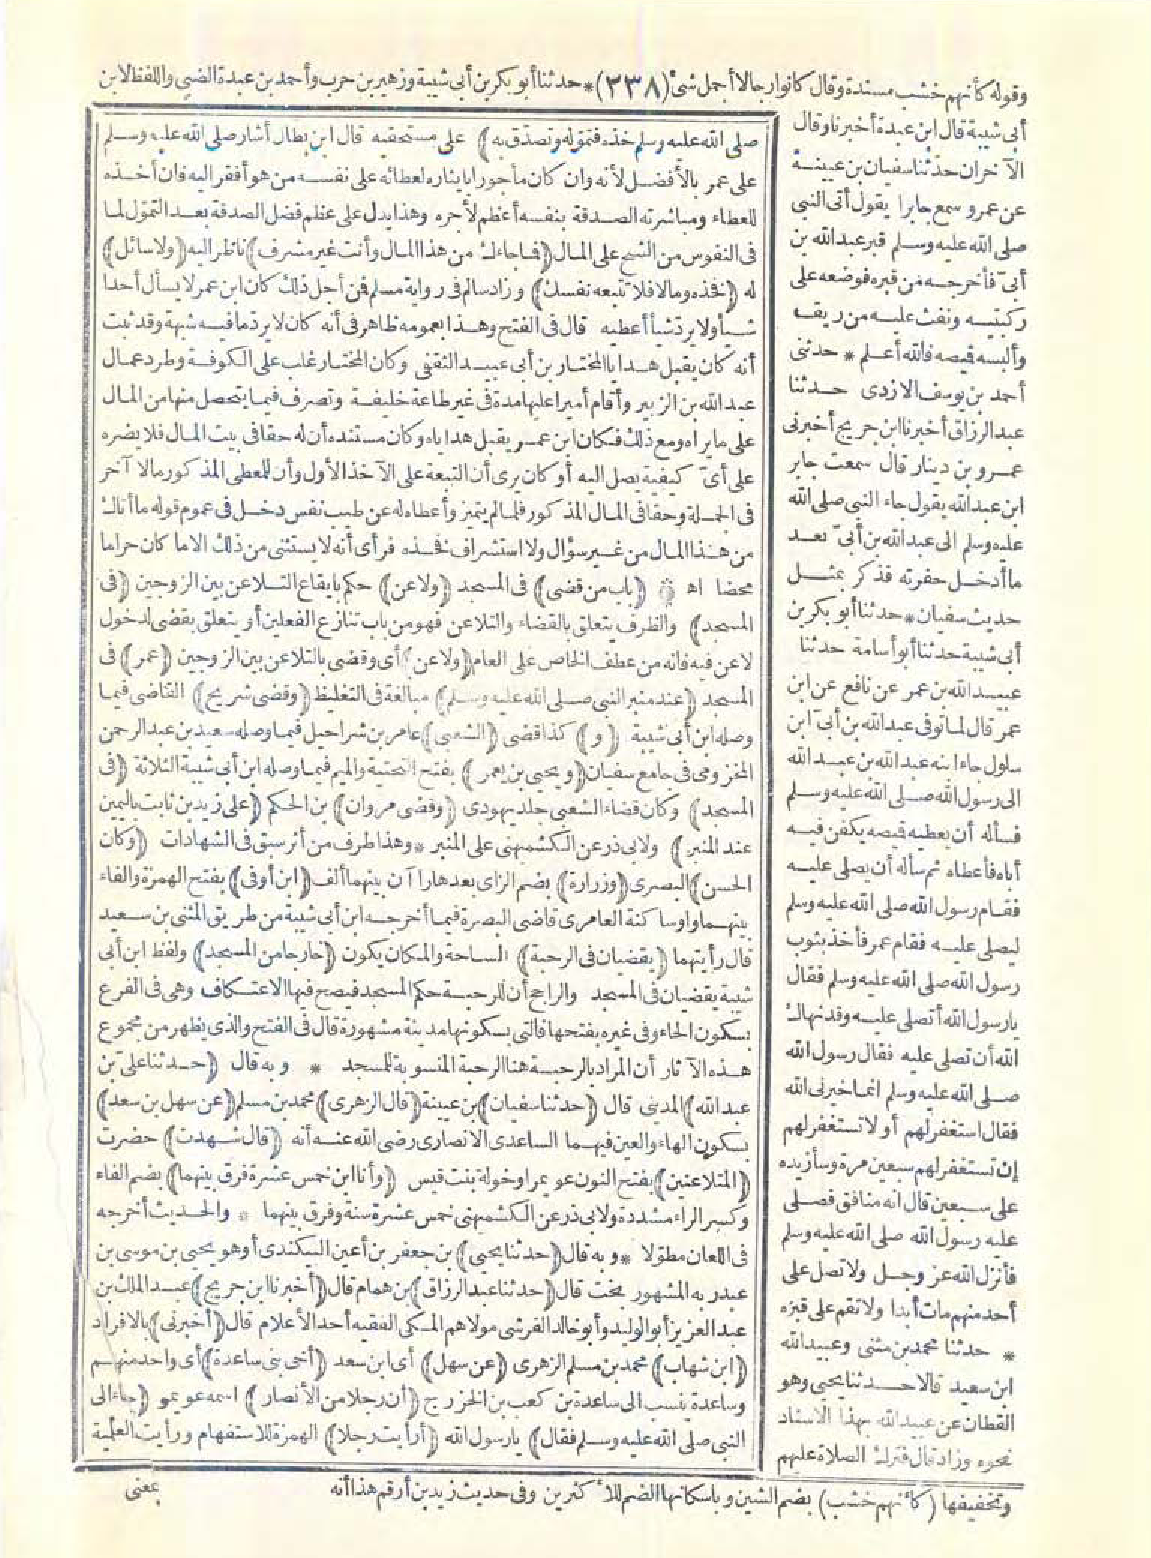 وقوله كأنهم خشب مسندة وقال كانوا رجالا أجمل شئ (٣٣٨) * حدثنا أبو بكر بن أبى شيبة وزهير بن حرب وأحمد بن عبدة الضبى واللفظ لابن
أبى شيبة قال ابن عبدة أخبرنا وقال
الآخران حدثنا سفيان بن عيينة
عن عمرو سمع جابرا يقول أتى النبى
صلى الله عليه وسلم قبر عبد الله بن
أبىّ فأخرجه من قبره فوضعه على
ركبتيه ونفث عليه من ريقه
وألبسه قميصه فالله أعلم * حدثنى
أحمد بن يوسف الازدى حدثنا
عبد الرزاق أخبرنا ابن جريج أخبرنى
عمرو بن دينار قال سمعت جابر
ابن عبد الله يقول جاء النبى صلى الله
عليه وسلم الى عبد الله بن أبىّ بعد
ما أدخل حفرته فذكر بمثل
حديث سفيان * حدثنا أبو بكر بن
أبى شيبة حدثنا أبو أسامة حدثنا
عبيد الله بن عمر عن نافع عن ابن
عمر قال لما توفى عبد الله بن أبىّ ابن
سلول جاء ابنه عبد الله بن عبد الله
الى رسول الله صلى الله عليه وسلم
فسأله أن يعطيه قميصه يكفن فيه
أباه فأعطاه ثم سأله أن يصلى عليه
فقام رسول الله صلى الله عليه وسلم
ليصلى عليه فقام عمر فأخذ بثوب
رسول الله صلى الله عليه وسلم فقال
يارسول الله أتصلى عليه وقد نهاك
الله أن تصلى عليه فقال رسول الله
صلى الله عليه وسلم انما خيرنى الله
فقال استغفر لهم أو لا تستغفر لهم
إن تستغفر لهم سبعين مرة وسأزيده
على سبعين قال انه منافق فصلى
عليه رسول الله صلى الله عليه وسلم
فأنزل الله عز وجل ولا تصل على
أحد منهم مات أبدا ولا تقم على قبره
* حدثنا محمد بن مثنى وعبيد الله
ابن سعيد قالا حدثنا يحيى وهو
القطان عن عبيد الله بهذا الاسناد
نحوه وزاد قال فترك الصلاة عليهم
صلى الله عليه وسلم خذه فتموله وتصدق به) على مستحقيه قال ابن بطال أشار صلى الله عليه وسلم
على عمر بالأفضل لأنه وان كان مأجورا بايثاره لعطائه على نفسه من هو أفقر اليه فان أخذه
للعطاء ومباشرته الصدقة بنفسه أعظم لأجره وهذا يدل على عظم فضل الصدقة بعد التمول لما
فى النفوس من الشح على المال (فما جاءك من هذا المال وأنت غير مشرف) ناظر اليه (ولا سائل)
له (فخذه ومالا فلا تتبعه نفسك) وزاد سالم فى رواية مسلم فمن أجل ذلك كان ابن عمر لا يسأل أحدا
شيأ ولا يرد شيأ أعطيه قال فى الفتح وهذا بعمومه ظاهر فى أنه كان لا يرد ما فيه شبهة وقد ثبت
أنه كان يقبل هدايا المختار بن أبى عبيد الثقفى وكان المختار غلب على الكوفة وطرد عمال
عبد الله بن الزبير وأقام أميرا عليها مدة فى غير طاعة خليفة وتصرف فيما يتحصل منها من المال
على ما يراه ومع ذلك فكان ابن عمر يقبل هداياه وكان مستنده أن له حقا فى بيت المال فلا يضره
على أىّ كيفية يصل اليه أو كان يرى أن التبعة على الآخذ الأول وأن للمعطى المذكور مالا آخر
فى الجملة وحقا فى المال المذكور فلما لم يتميز وأعطاه له عن طيب نفس دخل فى عموم قوله ما أتاك
من هذا المال من غير سؤال ولا استشراف فخذه فرأى أنه لا يستثنى من ذلك الا ما كان حراما
محضا اه ۞ (باب من قضى) فى المسجد (ولاعن) حكم بايقاع التلاعن بين الزوجين (فى
المسجد) والظرف يتعلق بالقضاء والتلاعن فهو من باب تنازع الفعلين أو يتعلق بقضى لدخول
لاعن فيه فانه من عطف الخاص على العام (ولاعن) أى وقضى بالتلاعن بين الزوجين (عمر) فى
المسجد (عند منبر النبى صلى الله عليه وسلم) مبالغة فى التغليظ (وقضى شريح) القاضى فيما
وصله ابن أبى شيبة (و) كذا قضى (الشعبى) عامر بن شراحيل فيما وصله سعيد بن عبد الرحمن
المخزومى فى جامع سفيان (ويحيى بن يعمر) بفتح التحتية والميم فيما وصله ابن أبى شيبة الثلاثة (فى
المسجد) وكان قضاء الشعبى جلد يهودى (وقضى مروان) بن الحكم (على زيد بن ثابت باليمين
عند المنبر) ولابى ذر عن الكشميهنى على المنبر * وهذا طرف من أثر سبق فى الشهادات (وكان
الحسن) البصرى (وزرارة) بضم الزاى بعدها راآن بينهما ألف (ابن أوفى) بفتح الهمزة والفاء
بينهما واو ساكنة العامرى قاضى البصرة فيما أخرجه ابن أبى شيبة من طريق المثنى بن سعيد
قال رأيتهما (يقضيان فى الرحبة) الساحة والمكان يكون (خارجا من المسجد) ولفظ ابن أبى
شيبة يقضيان فى المسجد والراجح أن للرحبة حكم المسجد فيصح فيها الاعتكاف وهى فى الفرع
بسكون الحاء وفى غيره بفتحها فالتى بسكونها مدينة مشهورة قال فى الفتح والذى يظهر من مجموع
هذه الآثار أن المراد بالرحبة هنا الرحبة المنسوبة للمسجد * وبه قال (حدثنا على بن
عبد الله) المدينى قال (حدثنا سفيان) بن عيينة (قال الزهرى) محمد بن مسلم (عن سهل بن سعد)
بسكون الهاء والعين فيهما الساعدى الانصارى رضى الله عنه أنه (قال شهدت) حضرت
(المتلاعنين) بفتح النون عويمرا وخولة بنت قيس (وأنا ابن خمس عشرة فرق بينهما) بضم الفاء
وكسر الراء مشددة ولابى ذر عن الكشميهنى خمس عشرة سنة وفرق بينهما * والحديث أخرجه
فى اللعان مطولا * وبه قال (حدثنا يحيى) بن جعفر بن أعين البيكندى أو هو يحيى بن موسى بن
عبد ربه المشهور بخت قال (حدثنا عبد الرزاق) بن همام قال (أخبرنا ابن جريج) عبد الملك بن
عبد العزيز أبو الوليد وأبو خالد القرشى مولاهم المكى الفقيه أحد الأعلام قال (أخبرنى) بالافراد
(ابن شهاب) محمد بن مسلم الزهرى (عن سهل) أى ابن سعد (أخى بنى ساعدة) أى واحد منهم
وساعدة ينسب الى ساعدة بن كعب بن الخزرج (أن رجلا من الأنصار) اسمه عويمر (جاء الى
النبى صلى الله عليه وسلم فقال) يارسول الله (أرأيت رجلا) الهمزة للاستفهام ورأيت العلمية
وتخفيفها (كأنهم خشب) بضم الشين وباسكانها الضم للأكثرين وفى حديث زيد بن أرقم هذا أنه
بمعنى